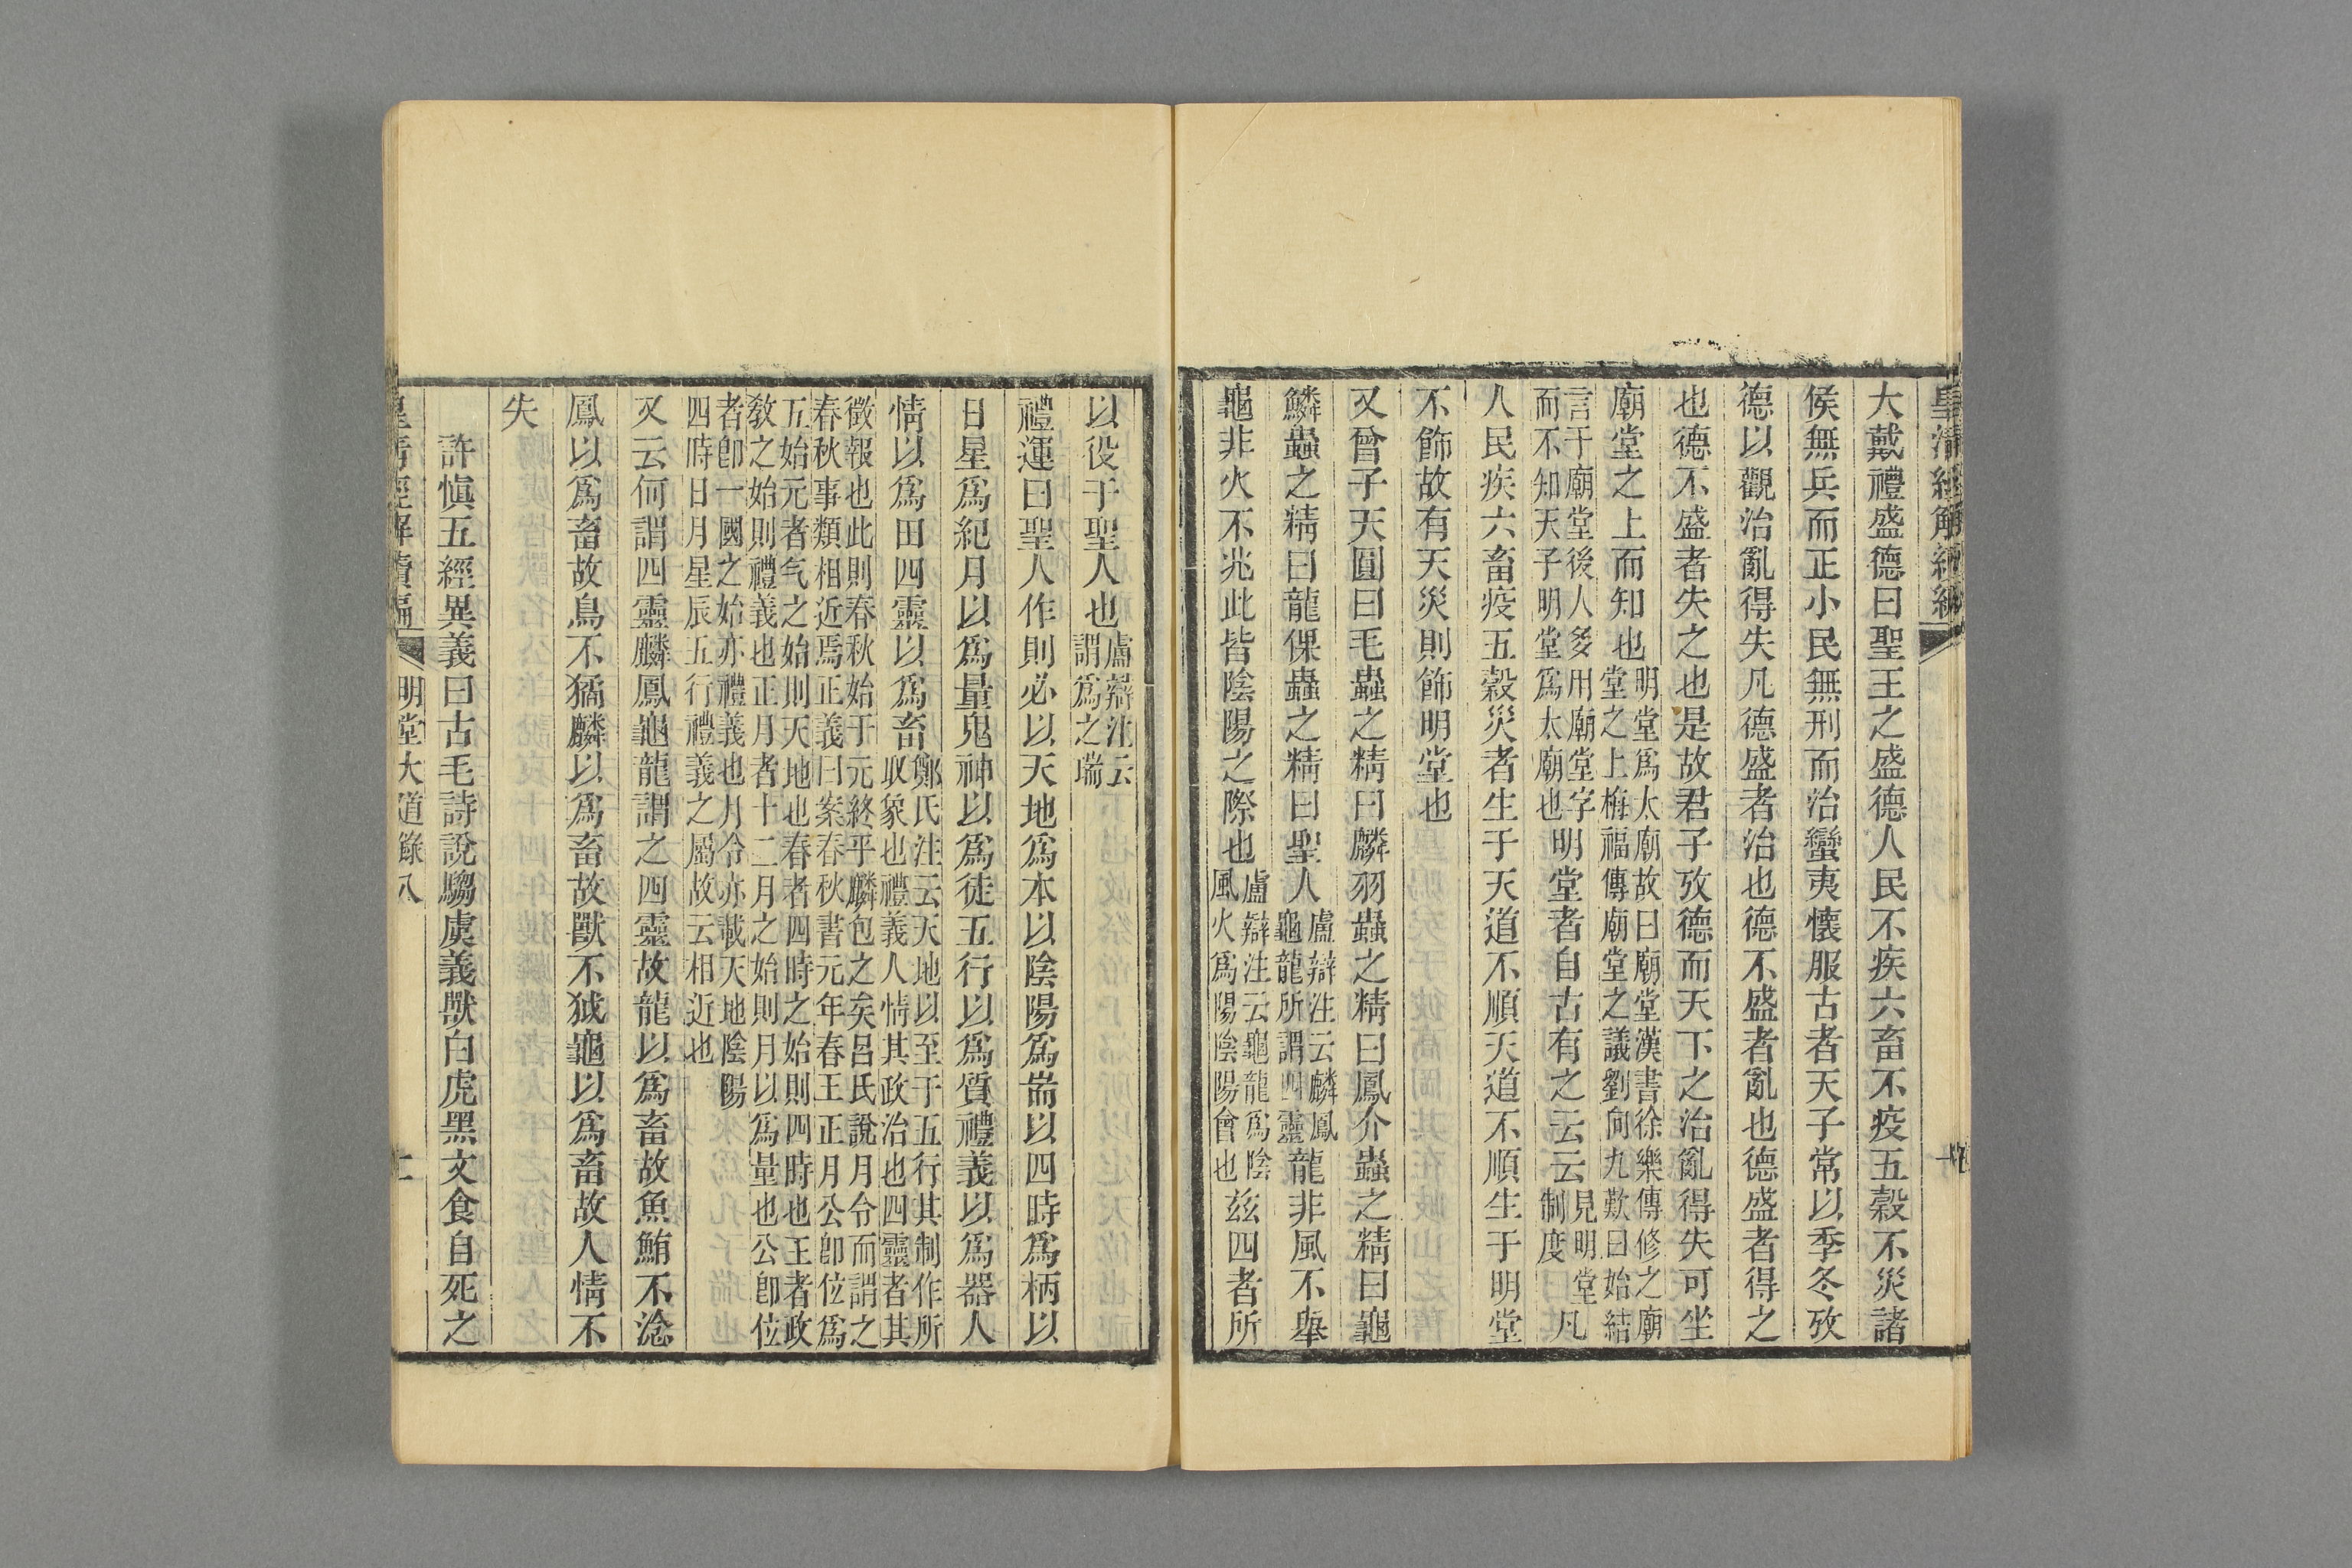 大戴禮盛德曰聖王之盛德人民不疾六畜不疫五穀不災諸
侯無兵而正小民無刑而治蠻夷懷服古者天子常以季冬攷
德以觀治亂得失凡德盛者治也德不盛者亂也德盛者得之
也德不盛者失之也是故君子攷德而天下之治亂得失可坐
廟堂之上而知也
明堂爲太廟故曰廟堂漢書徐樂傳修之廟
堂之上梅福傳廟堂之議劉向九歎曰始結
言于廟堂後人多用廟堂字
而不知天子明堂爲太廟也
明堂者自古有之云云
見明堂
制度
凡
人民疾六畜疫五穀災者生于天道不順天道不順生于明堂
不飾故有天災則飾明堂也
又曾子天圓曰毛蟲之精曰麟羽蟲之精曰鳳介蟲之精曰龜
鱗蟲之精曰龍倮蟲之精曰聖人
盧辯注云麟鳳
龜龍所謂四靈
龍非風不舉
龜非火不兆此皆陰陽之際也
盧辯注云龜龍爲陰
風火爲陽陰陽會也
茲四者所
以役于聖人也
盧辯注云
謂爲之瑞
禮運曰聖人作則必以天地爲本以陰陽爲耑以四時爲柄以
日星爲紀月以爲量鬼神以爲徒五行以爲質禮義以爲器人
情以爲田四靈以爲畜
鄭氏注云天地以至于五行其制作所
取象也禮義人情其政治也四靈者其
徵報也此則春秋始于元終乎麟包之矣呂氏說月令而謂之
春秋事類相近焉正義曰案春秋書元年春王正月公卽位爲
五始元者气之始則天地也春者四時之始則四時也王者政
敎之始則禮義也正月者十二月之始則月以爲量也公卽位
者卽一國之始亦禮義也月令亦載天地陰陽
四時日月星辰五行禮義之屬故云相近也
又云何謂四靈麟鳳龜龍謂之四靈故龍以爲畜故魚鮪不淰
鳳以爲畜故鳥不獝麟以爲畜故獸不狘龜以爲畜故人情不
失
許愼五經異義曰古毛詩說騶虞義獸白虎黑文食自死之
皇清經解續編
明堂大道錄八